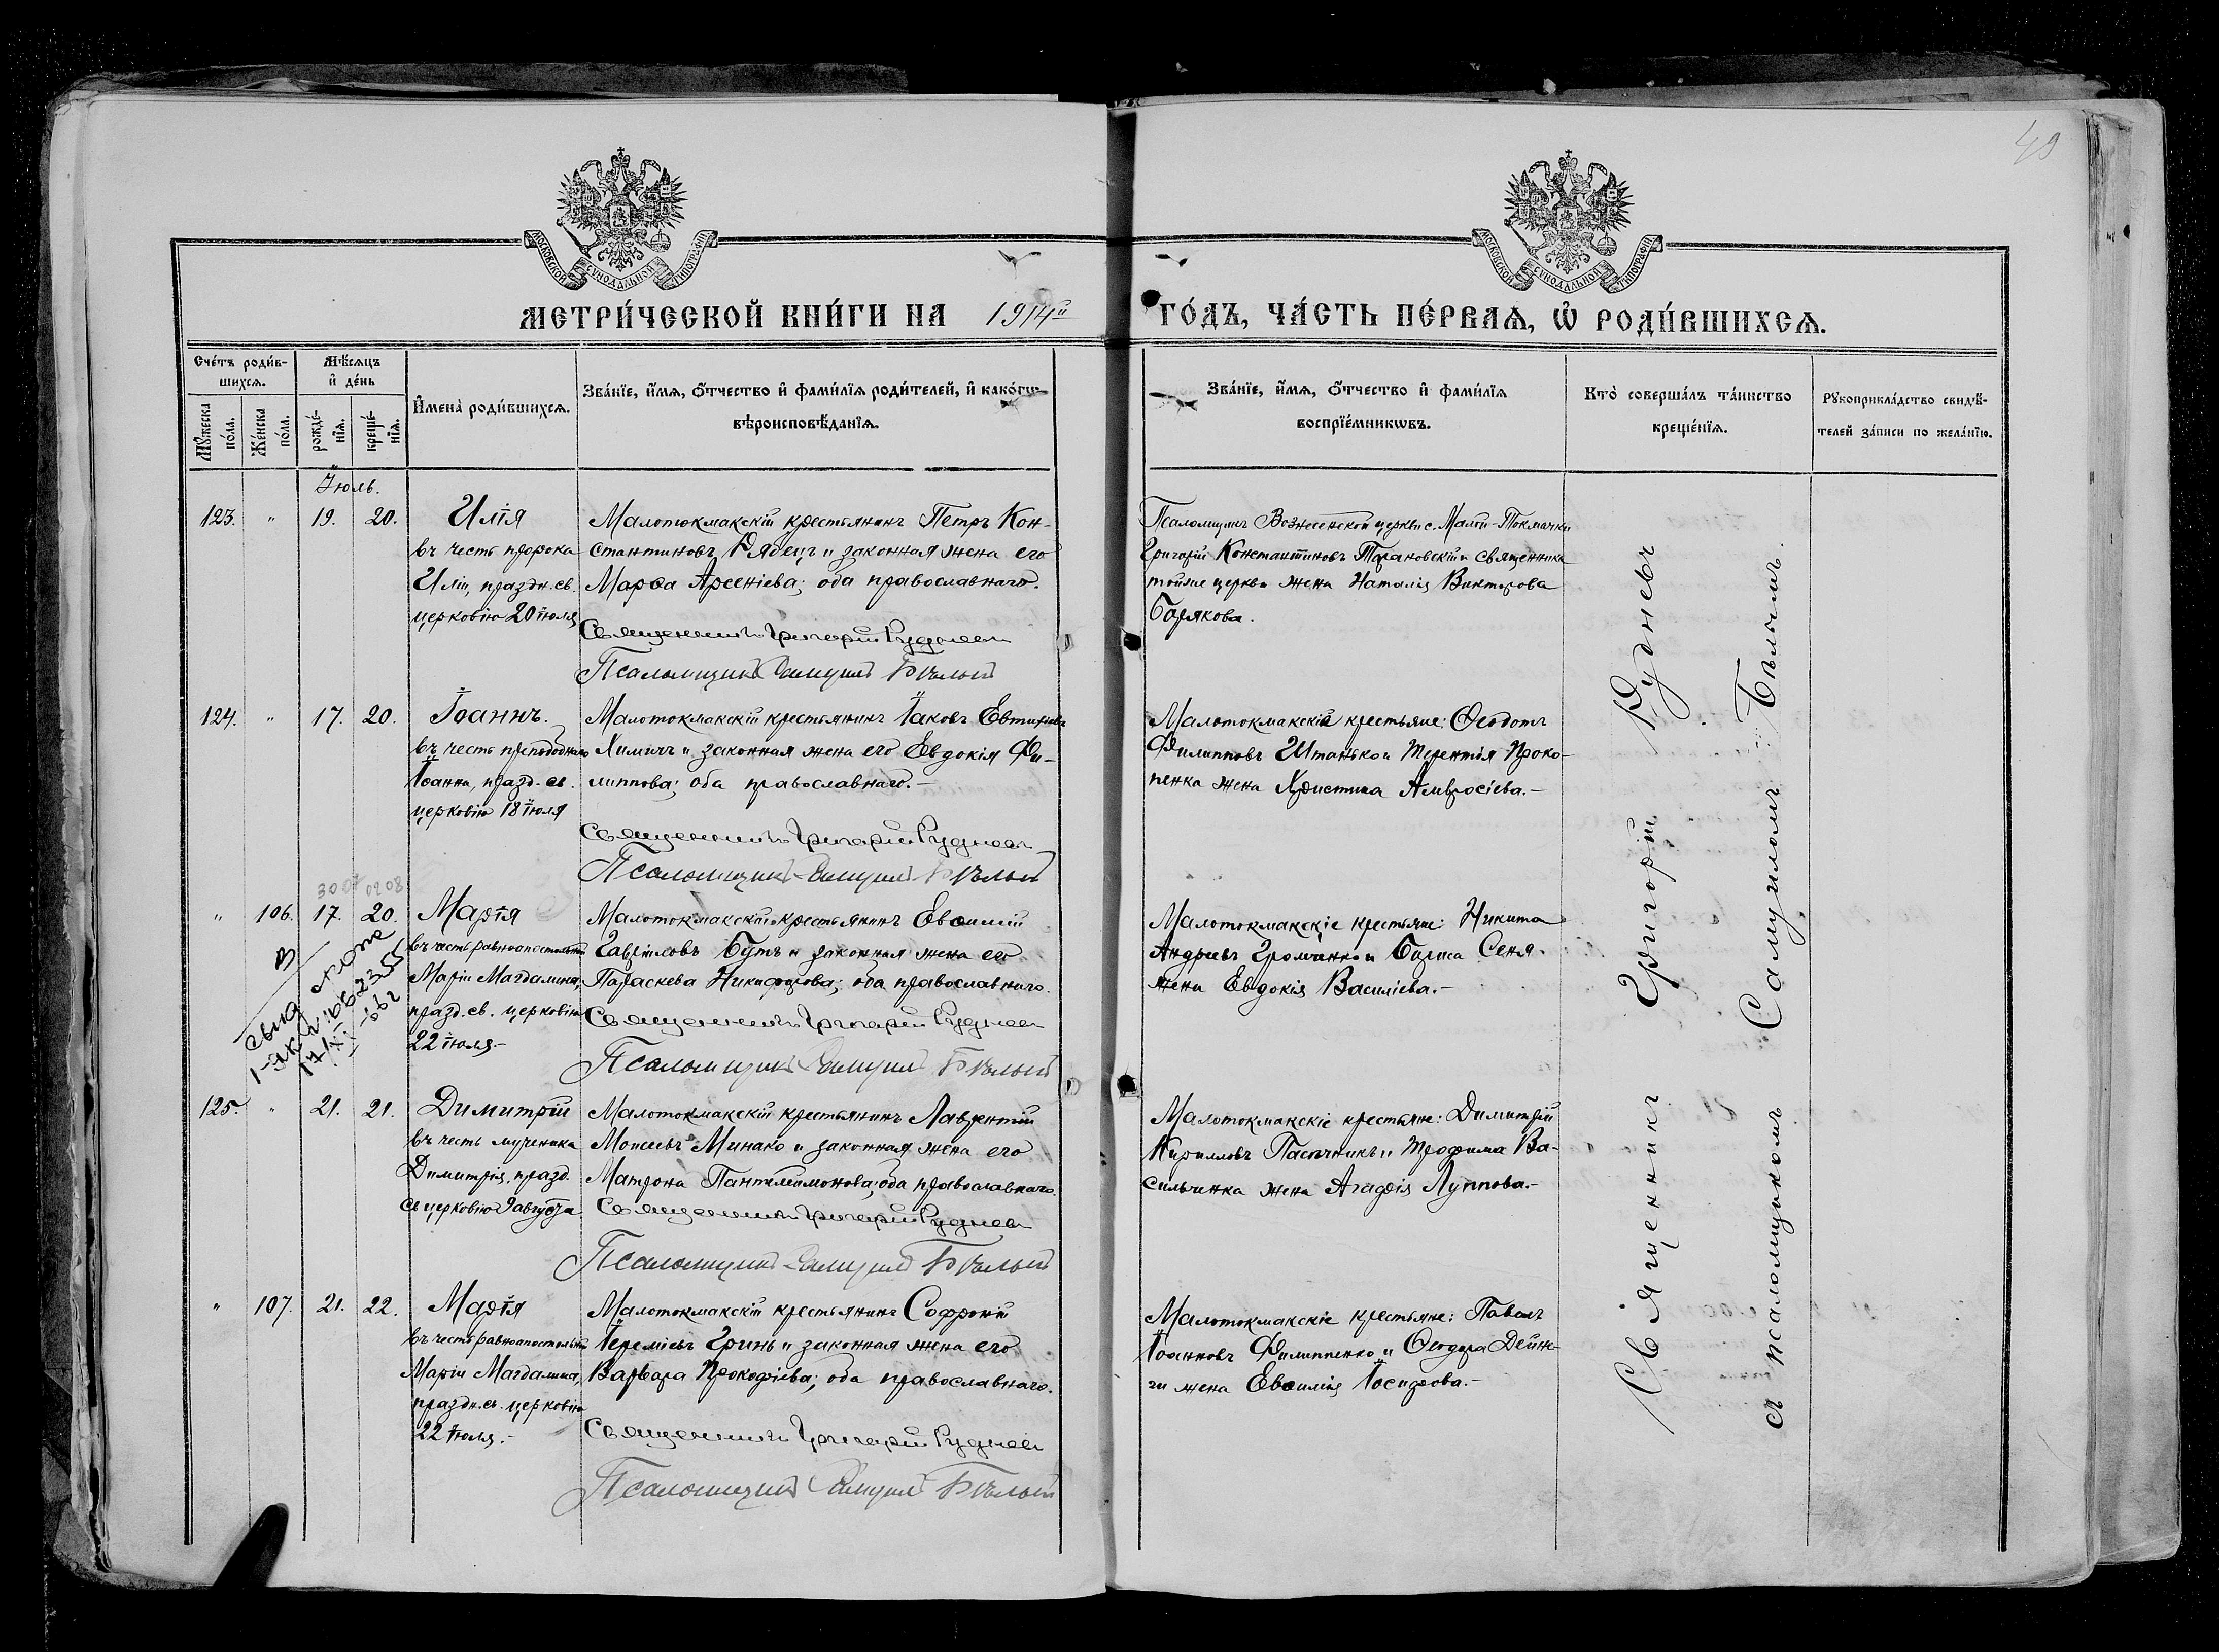 49
МОСКОВСКОЙ СУНОДАЛЬНОЙ ТИПОГРАФІИ
МОСКОВСКОЙ СУНОДАЛЬНОЙ ТИПОГРАФІИ
МЕТРИ́ЧЕСКОЙ КНИ́ГИ НА 1914й ГО́ДЪ, ЧА́СТЬ ПЕ́РВАѦ, Ѽ РОДИ́ВШИХСѦ.
Сче́тъ роди́в-
шихсѧ.
Мѣ́сяцъ
и҆ де́нь
Мꙋ́жеска по́ла.
Же́нска по́ла.
рожде́-
нїѧ.
креще́-
нїѧ.
И҆мена̀ роди́вшихсѧ.
Зва́нїе, и҆́мѧ, ѻ҆́тчество и҆ фами́лїѧ роди́телей, и҆ како́гѡ
вѣроисповѣ́данїѧ.
Зва́нїе, и҆́мѧ, ѻ҆́тчество и҆ фами́лїѧ
воспрїе́мникѡвъ.
Кто̀ соверша́лъ та́инство
креще́нїѧ.
Рꙋкоприкла́дство свидѣ́-
телей за́писи по жела́нїю.
Іюль.
123. " 19. 20. Илія
въ честь пророка
Иліи, праздн. св.
церковію 20 іюля
Малотокмакскій крестьянинъ Петръ Кон-
стантиновъ Рябецъ и законная жена его
Марѳа Арсеніева; оба православнаго.
Священникъ Григорій Руднев
Псаломщикъ Самуил Бѣлый
Псаломщикъ Вознесенской церкви с. Малой-Токмачки
Григорій Константиновъ Тарановскій и священника
тойже церкви жена Наталія Викторова
Барякова.
124. " 17. 20. Іоаннъ.
въ честь преподобнаго
Іоанна, празд. св.
церковію 18 іюля
Малотокмакскій крестьянинъ Іаковъ Евтихіевъ
Химичъ и законная жена его Евдокія Фи-
липпова; оба православнаго.-
Священникъ Григорій Руднев
Псаломщикъ Самуил Бѣлый
Малотокмакскіе крестьяне: Ѳеодотъ
Филипповъ Штанько и Терентія Проко-
пенка жена Христина Амвросіева.-
30.07 02 08
" 106. 17. 20. Марія
въ честь равноапостольной
Маріи Магдалины,
празд. св. церковію
22 іюля.-
Малотокмакскій крестьянинъ Евѳимій
Гавріиловъ Бутъ и законная жена его
Параскева Никифорова; оба православнаго.
Священникъ Григорій Руднев
Псаломщикъ Самуил Бѣлый
Малотокмакскіе крестьяне: Никита
Андреевъ Громченко и Бориса Сеня
жена Евдокія Василіева.-
125. " 21. 21. Димитрій
въ честь мученика
Димитрія, празд.
св церковію 9 августа
Малотокмакскій крестьянинъ Лаврентій
Моисеевъ Минако и законная жена его
Матрона Пантелеимонова; оба православнаго.
Священникъ Григорій Руднев
Псаломщикъ Самуил Бѣлый
Малотокмакскіе крестьяне: Димитрій
Кирилловъ Пасѣчникъ и Трофима Ва-
сильченка жена Агафія Луппова.-
" 107. 21. 22. Марія
въ честь равноапостольной
Маріи Магдалины,
праздн. св. церковію
22 іюля.-
Малотокмакскій крестьянинъ Софроній
Іереміевъ Гринь и законная жена его
Варвара Прокофіева; оба православнаго.
Священникъ Григорій Руднев
Псаломщикъ Самуил Бѣлый
Малотокмакскіе крестьяне: Павелъ
Іоанновъ Филиппенко и Ѳеодора Дейне-
ги жена Евѳимія Іосифова.-
Священникъ Григорій Рудневъ
съ псаломщикомъ Самуиломъ Бѣлымъ.